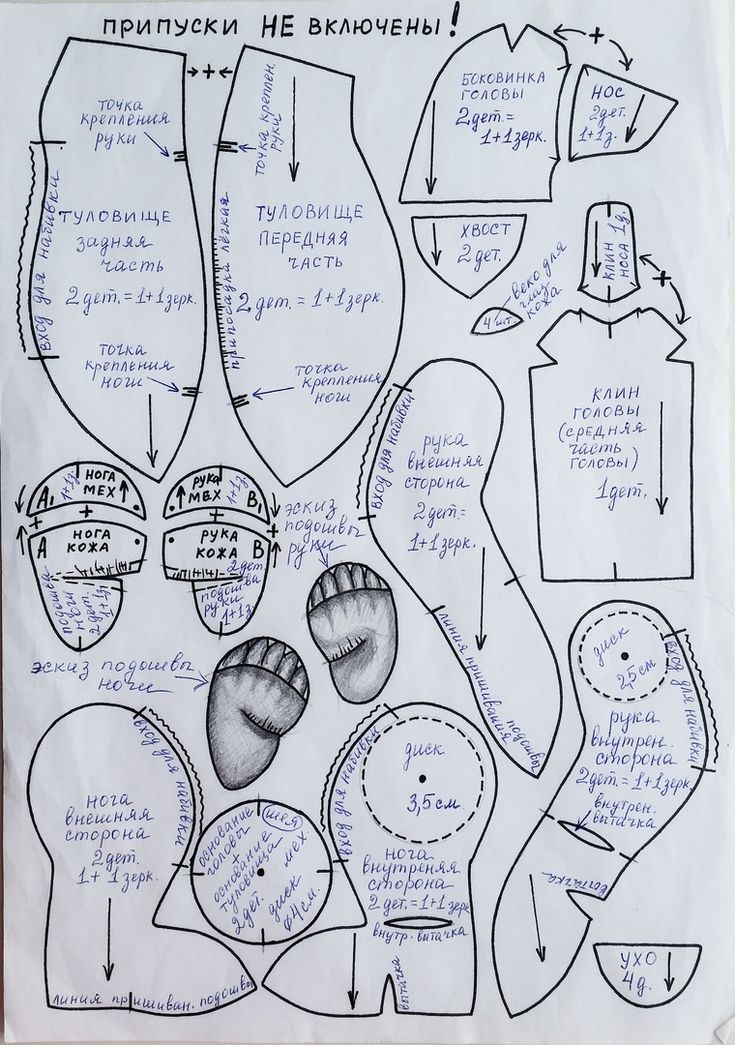 ПРИПУСКИ НЕ ВКЛЮЧЕНЫ!
ТОЧКА
КРЕПЛЕНИЯ
РУКИ
ВХОД ДЛЯ НАБИВКИ
ТУЛОВИЩЕ
ЗАДНЯЯ
ЧАСТЬ
2 дет. = 1+1 зерк.
ТОЧКА
КРЕПЛЕНИЯ
НОГИ
+
ТОЧКА КРЕПЛЕН.
РУКИ
ПРИПОСАДКА ЛЁГКАЯ
ТУЛОВИЩЕ
ПЕРЕДНЯЯ
ЧАСТЬ
2 дет. = 1+1 зерк.
ТОЧКА
КРЕПЛЕНИЯ
НОГИ
БОКОВИНКА
ГОЛОВЫ
2 дет. =
1+1 зерк.
+
НОС
2 дет.
1+1 з.
ХВОСТ
2 дет.
4 шт.
ВЕКО ДЛЯ
ГЛАЗ
КОЖА
КЛИН 1 д.
НОСА
+
КЛИН
ГОЛОВЫ
(СРЕДНЯЯ
ЧАСТЬ
ГОЛОВЫ)
1 дет.
ВХОД ДЛЯ НАБИВКИ
РУКА
ВНЕШНЯЯ
СТОРОНА
2 дет. =
1+1 зерк.
ЛИНИЯ ПРИШИВАНИЯ ПОДОШВЫ
НОГА
МЕХ
A₁
1+1 з.
+
+
A
НОГА
КОЖА
ПОДОШВА
НОГИ
2 дет.
1+1 з.
РУКА
МЕХ
B₁
1+1 з.
+
+
РУКА
КОЖА
B
2 дет.
ПОДОШВА
РУКИ
1+1 з.
ЭСКИЗ
ПОДОШВЫ
РУКИ
ЭСКИЗ ПОДОШВЫ
НОГИ
ДИСК
2,5 см
ВХОД ДЛЯ НАБИВКИ
РУКА
ВНУТРЕН.
СТОРОНА
2 дет. = 1+1 зерк.
ВНУТРЕН.
ВЫТАЧКА
ВЫТАЧКА
ВХОД ДЛЯ НАБИВКИ
НОГА
ВНЕШНЯЯ
СТОРОНА
2 дет.
1+1 зерк.
ЛИНИЯ ПРИШИВАН. ПОДОШВЫ
ОСНОВАНИЕ (ШЕЯ)
ГОЛОВЫ
+
ОСНОВАНИЕ МЕХ
ТУЛОВИЩА
2 дет. ДИСК
ø 4 см.
ВХОД ДЛЯ НАБИВКИ
ДИСК
3,5 см.
НОГА
ВНУТРЕНЯЯ
СТОРОНА
2 дет. = 1+1 зерк
ВНУТР. ВЫТАЧКА
ВЫТАЧКА
УХО
4 д.